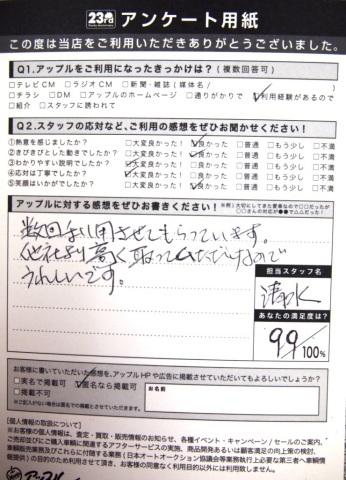 23rd アンケート用紙
この度は当店をご利用いただきありがとうございました。
Q1.アップルをご利用になったきっかけは?(複数回答可)
□テレビCM □ラジオCM □新聞・雑誌(媒体名／ )
□チラシ □DM □アップルのホームページ □通りがかりで □利用経験があるので
□紹介 □スタッフに誘われて
Q2.スタッフの応対など、ご利用の感想をぜひお聞かせください!
①熱意を感じましたか? □大変良かった! □良かった □普通 □もう少し □不満
②きびきびとした動きでしたか? □大変良かった! □良かった □普通 □もう少し □不満
③わかりやすい説明でしたか? □大変良かった! □良かった □普通 □もう少し □不満
④応対は丁寧でしたか? □大変良かった! □良かった □普通 □もう少し □不満
⑤笑顔はいかがでしたか? □大変良かった! □良かった □普通 □もう少し □不満
アップルに対する感想をぜひお書きください!
数回利用させてもらっています。
他社より高く取っていただけるので
うれしいです。
担当スタッフ名
清水
あなたの満足度は?
99/100%
お客様に書いていただいた感想を、アップルHPや広告に掲載させていただいてもよろしいでしょうか?
□実名で掲載可 □匿名なら掲載可
□掲載不可
お名前
※ご記入がない場合は匿名での掲載とさせていただきます。
【個人情報の取扱について】
※お客様の個人情報は、査定・買取・販売情報のお知らせ、各種イベント・キャンペーン／セールのご案内、
ご売却並びにご購入車輌に関連するアフターサービスの実施、商品開発あるいは顧客満足の向上策の検討、
車輌販売業務及びこれらに付随する業務(日本オートオークション協議会等業務執行上必要な第三者へ車輌情
報提供)の目的のため利用させて頂き、お客様の同意なく利用目的以外には利用致しません。
アップル